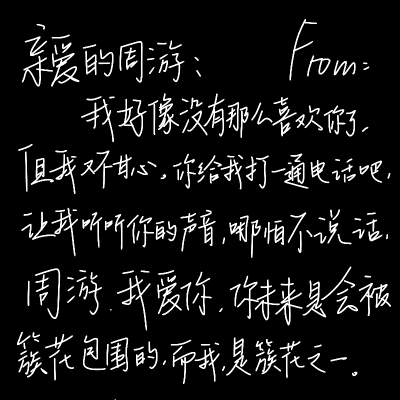 亲爱的周游： From：
我好像没有那么喜欢你了，
但我又不甘心。你给我打一通电话吧，
让我听听你的声音，哪怕不说话，
周游，我爱你，你未来是会被
簇花包围的，而我，是簇花之一。